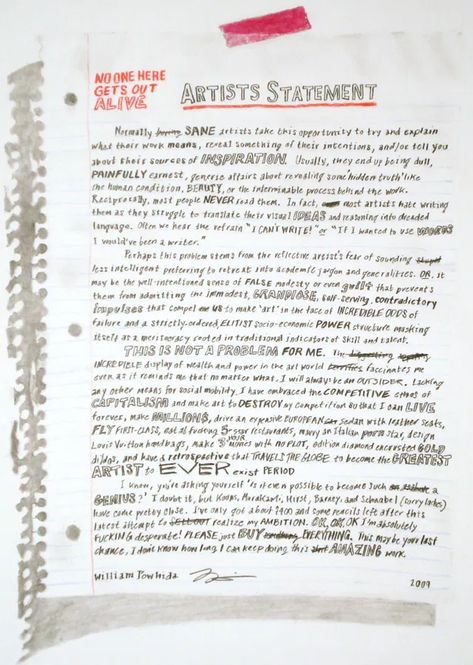 NO ONE HERE
GETS OUT
ALIVE
ARTISTS STATEMENT
Normally boring SANE artists take this opportunity to try and explain
what their work means, reveal something of their intentions, and/or tell you
about their sources of INSPIRATION. Usually, they end up being dull,
PAINFULLY earnest, generic affairs about revealing some 'hidden truth' like
the human condition, BEAUTY, or the interminable process behind the work.
Reciprocally, most people NEVER read them. In fact, most artists hate writing
them as they struggle to translate their visual IDEAS and reasoning into dreaded
language. Often we hear the refrain "I CAN'T WRITE!" or "IF I wanted to use WORDS
I would've been a writer."
Perhaps this problem stems from the reflective artist's fear of sounding
less intelligent preferring to retreat into academic jargon and generalities. OR, it
may be the well-intentioned sense of FALSE modesty or even guilt that prevents
them from admitting the immodest, GRANDIOSE, self-serving, contradictory
impulses that compel us to make 'art' in the face of INCREDIBLE ODDS of
failure and a strictly-ordered, ELITIST socio-economic POWER structure masking
itself as a meritocracy rooted in traditional indicators of skill and talent.
THIS IS NOT A PROBLEM FOR ME. The
INCREDIBLE display of wealth and power in the art world terrifies fascinates me
even as it reminds me that no matter what, I will always be an OUTSIDER. Lacking
any other means for social mobility, I have embraced the COMPETITIVE ethos of
CAPITALISM and make art to DESTROY my competition so that I can LIVE
forever, make MILLIONS, drive an expensive EUROPEAN sedan with leather seats,
FLY first-class, eat at fucking 5-star restaurants, marry an Italian porn star, design
Louis Vuitton handbags, make 3 HOUR movies with no PLOT, edition diamond encrusted GOLD
dildos, and have a retrospective that TRAVELS THE GLOBE to become the GREATEST
ARTIST to EVER exist PERIOD
I know, you're asking yourself "Is it even possible to become such a
GENIUS?" I doubt it, but Koons, Murakami, Hirst, Barney, and Schnabel (sorry ladies)
have come pretty close. I've only got about $400 and some pencils left after this
latest attempt to sell out realize my AMBITION. OK, OK, OK I'm absolutely
FUCKING desperate! PLEASE just BUY EVERYTHING. This may be your last
chance, I don't know how long I can keep doing this AMAZING work.
William Powhida
2009